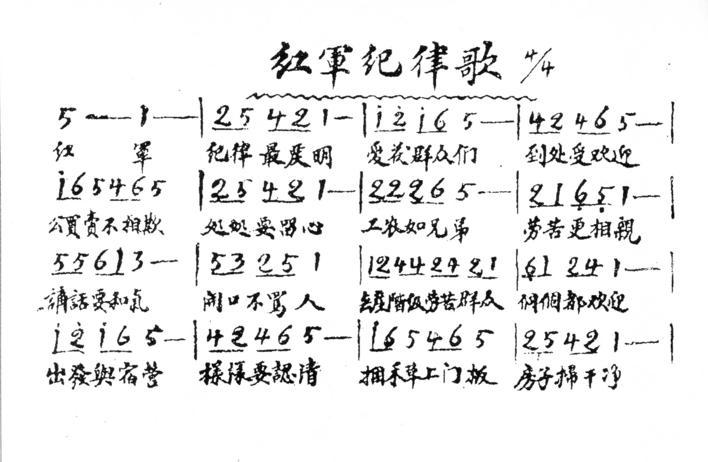 紅軍紀律歌 4/4
5 — 1 — | 25 421 — | i2 i6 5 — | 42 46 5 — |
紅 軍 紀律最嚴明 愛護群众们 到处受欢迎
i65465 | 25 421 — | 2226 5 — | 21651 — |
公買賣不相欺 处处要留心 工农如兄弟 劳苦更相親
55613 — | 53251 | 12442421 | 61 241 — |
講話要和气 開口不罵人 劳苦群众 個個都欢迎
i2 i6 5 — | 42465 — | 165465 | 25421 — |
出發與宿營 樣樣要認清 捆禾草上门板 房子掃干净